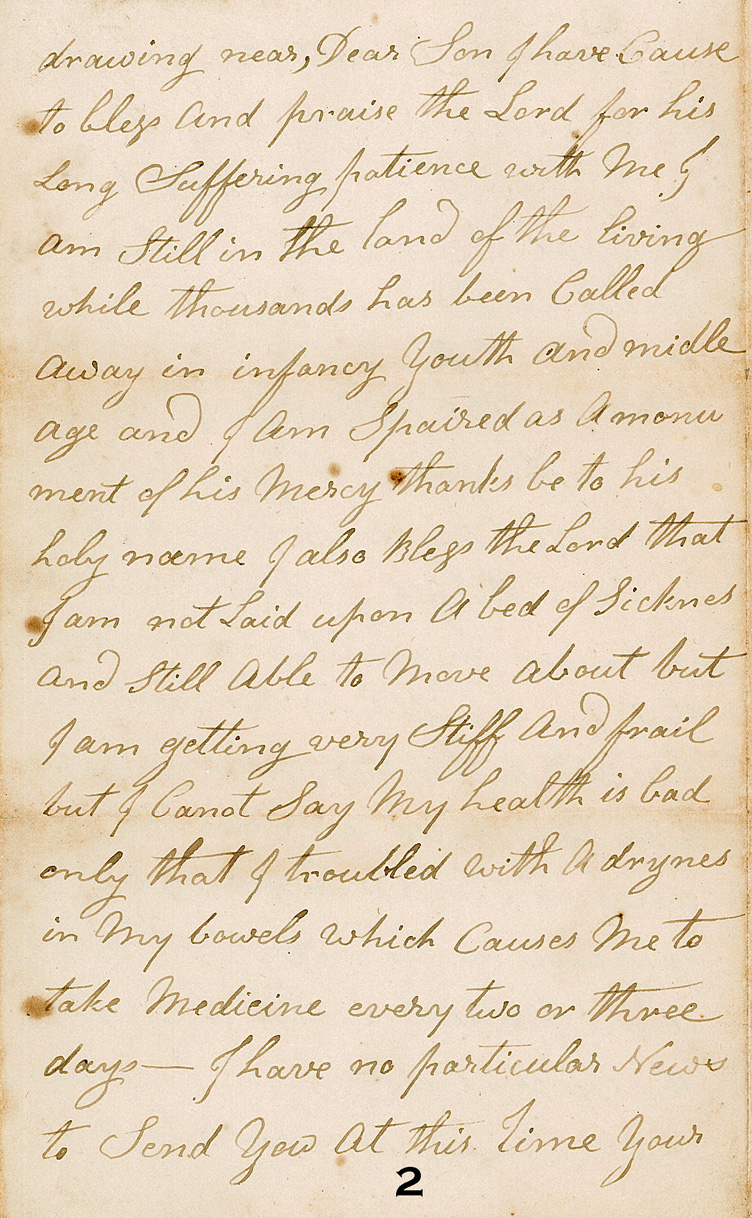 drawing near, Dear Son I have Cause
to bless And praise the Lord for his
Long Suffering patience with Me I
am Still in the land of the living
while thousands has been Called
Away in infancy Youth and midle
age and I Am Spaired as A monu
ment of his Mercy thanks be to his
holy name I also Bless the Lord that
I am not Laid upon A bed of Sicknes
And Still Able to Move about but
I am getting very Stiff And frail
but I Canot Say My health is bad
only that I troubled with A drynes
in My bowels which Causes Me to
take Medicine every two or three
days — I have no particular News
to Send You At this time Your
2